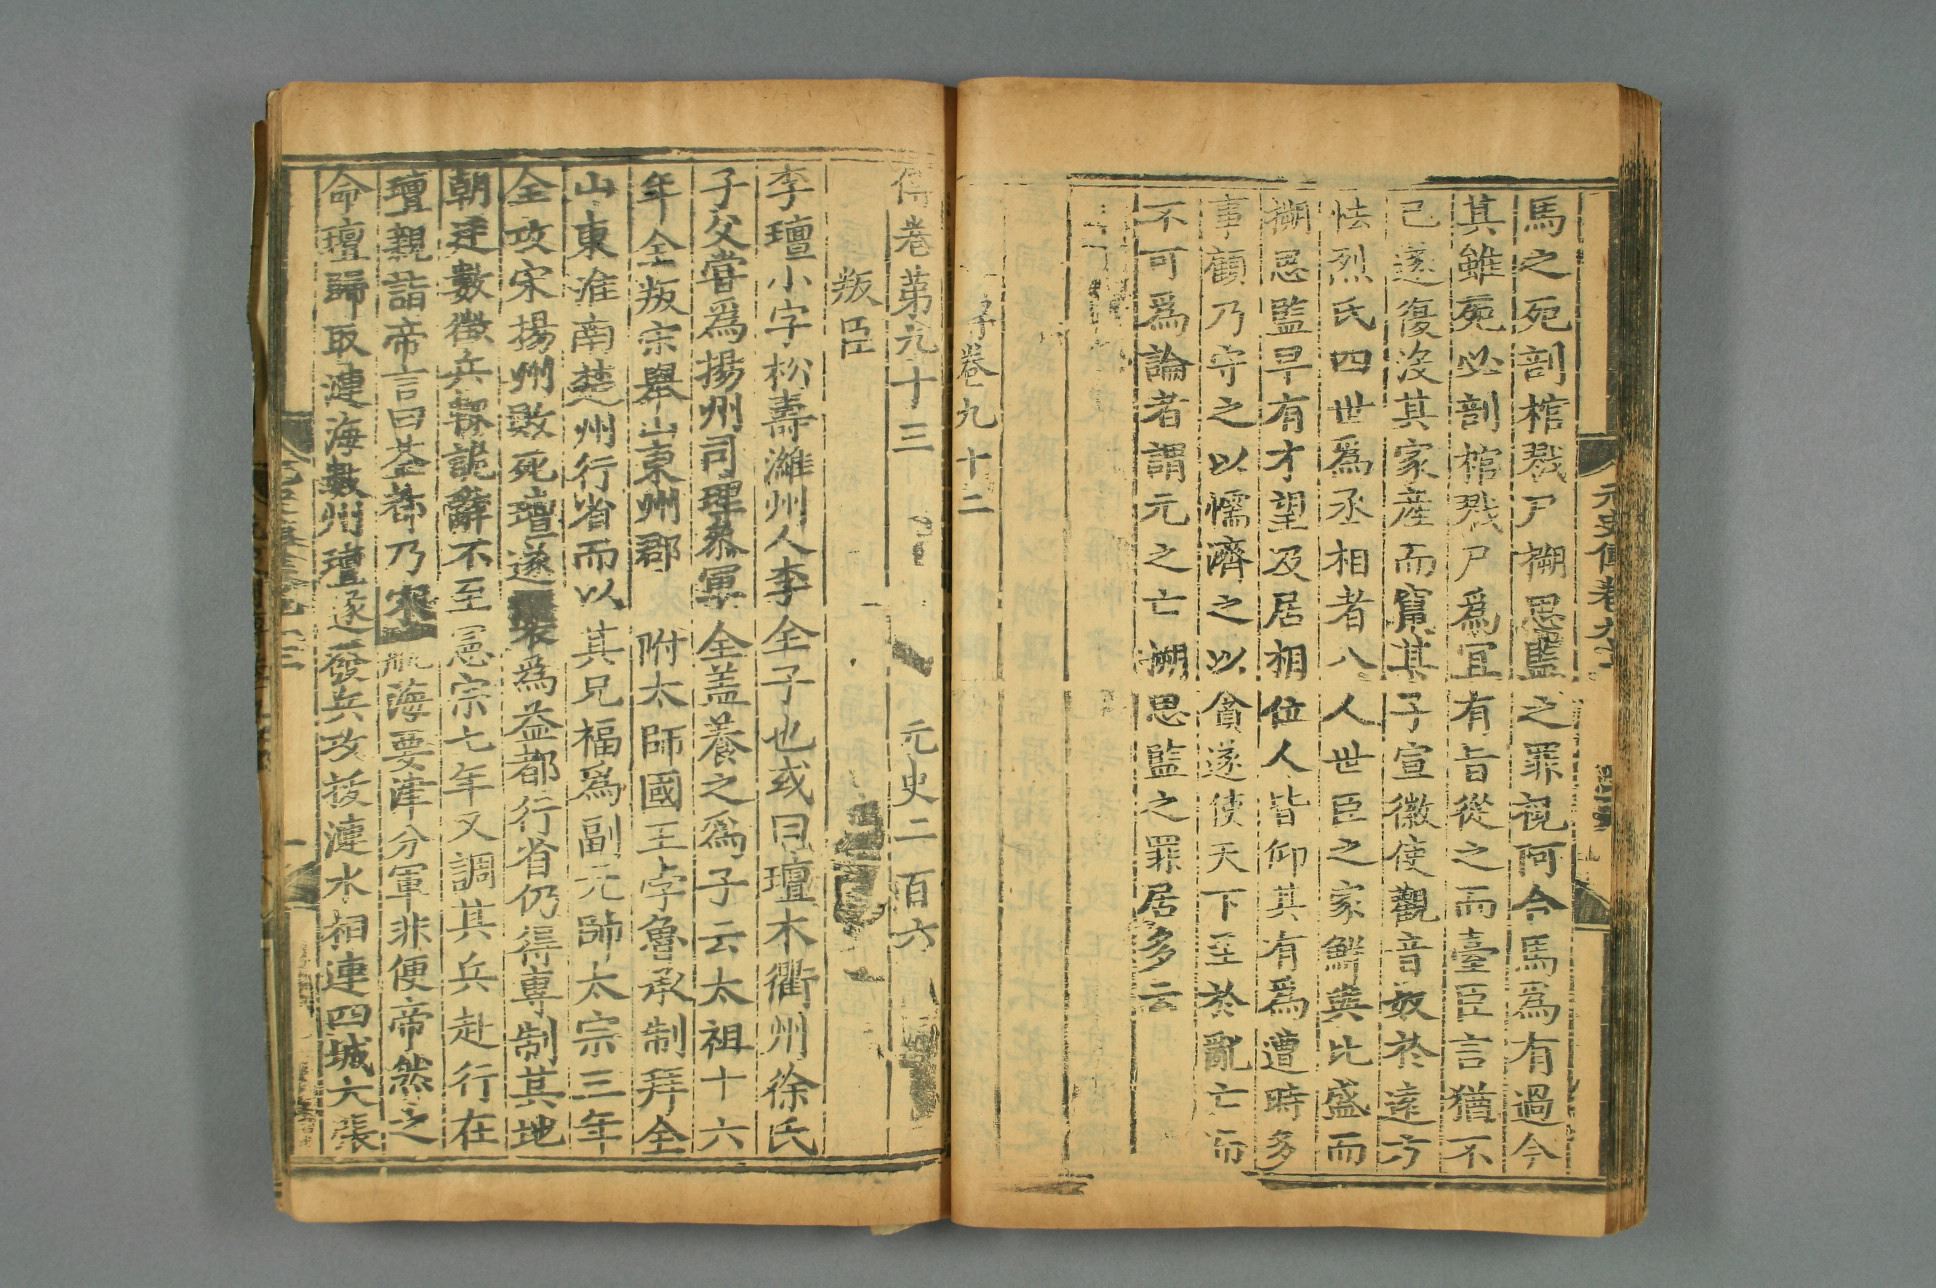 元史傳卷九十二
馬之死剖棺戮尸搠思監之罪視阿合馬爲有過今
其雖死必剖棺戮尸爲宜有旨從之而臺臣言猶不
已遂復沒其家産而竄其子宣徽使觀音奴於遠方
怯烈氏四世爲丞相者八人世臣之家鮮與比盛而
搠思監早有才望及居相位人皆仰其有爲遭時多
事顧乃守之以懦濟之以貪遂使天下至於亂亡而
不可爲論者謂元之亡搠思監之罪居多云
傳卷九十二
傳卷第九十三 元史二百六
叛臣
李璮小字松壽濰州人李全子也或曰璮本衢州徐氏
子父嘗爲揚州司理參軍全盖養之爲子云太祖十六
年全叛宗舉山東州郡 附太師國王孛魯承制拜全
山東淮南楚州行省而以其兄福爲副元帥太宗三年
全攻宋揚州敗死璮遂襲爲益都行省仍得專制其地
朝廷數徵兵輒詭辭不至憲宗七年又調其兵赴行在
璮親詣帝言曰益都乃宋航海要津分軍非便帝然之
命璮歸取漣海數州璮遂發兵攻拔漣水相連四城大張